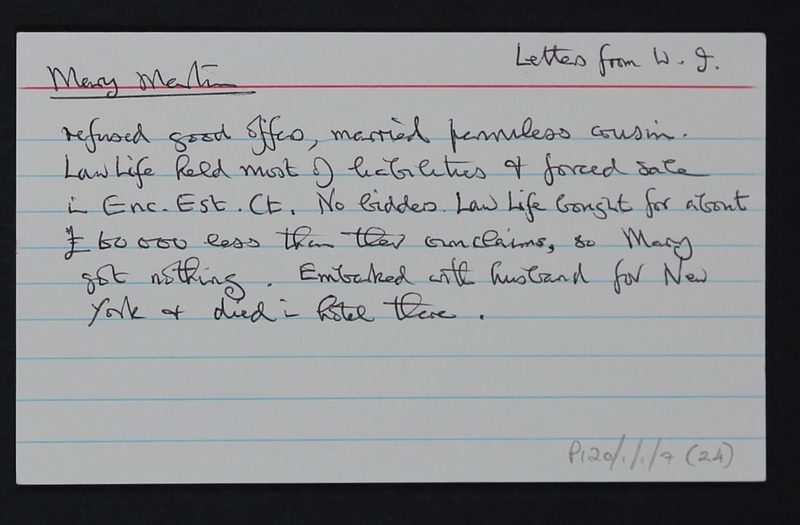 Letters from W. I.
Mary Martin
refused good offers, married penniless cousin.
Law Life held most of liabilities & forced sale
in Enc. Est. Ct. No bidders. Law Life bought for about
£60000 less than their own claims, so Mary
got nothing. Embarked with husband for New
York & died in hotel there.
P120/1/1/7 (24)